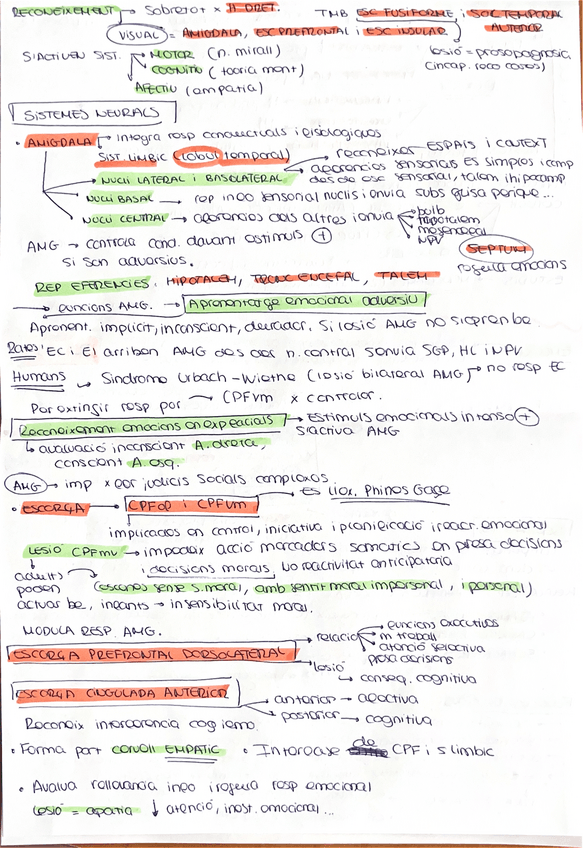 RECONEIXEMENT → Sobretot x H. DRET. TMB ESC FUSIFORME i SOC TEMPORAL ANTERIOR
VISUAL = AMIGDALA, ESC PREFRONTAL i ESC INSULAR
lesió = prosopagnosia
(incap. reco cares)
S'ACTIVEN SIST. → MOTOR (n. mirall)
COGNITIU (teoria ment)
AFECTIU (empatia)
SISTEMES NEURALS
• AMIGDALA → integra resp conductuals i fisiologiques
SIST. LIMBIC (lobul temporal)
→ reconeixer ESPAIS i CONTEXT
NUCLI LATERAL i BASOLATERAL → aferencies sensorials ES simples i comp
des de esc sensorial, talem i hipocamp
NUCLI BASAL → rep info sensorial nuclis i envia subs grisa
NUCLI CENTRAL → aferencies dels altres i envia → bulb
hipotalem
mesencefal
NPV
AMG → controla cond. davant estimuls +
si son adversius.
SEPTUM
regula emocions
REP EFERENCIES: HIPOTALEM, TRONC ENCEFAL, TALEM
→ funcions AMG. → Aprenentatge emocional adversiu
Aprenent. implicit, inconscient, declarar. Si lesió AMG no s'apren be.
Rates: EC i EI arriben AMG des del n. central s'envia SGP, HL i NPV
Humans → Sindrome Urbach-Wiethe (lesió bilateral AMG) → no resp EC
Per extingir resp por → CPFvm x controlar.
Reconeixement emocions en exp facials → Estimuls emocionals intenso +
s'activa AMG
↳ avaluació inconscient A. dreta,
conscient A. esq.
AMG → imp x fer judicis socials complexos.
• ESCORÇA → CPFof i CPFvm → Es lliox. Phineas Gage
implicades en control, iniciativa i planificació i reacr. emocional
LESIÓ CPFmv → impedeix acció marcadors somatics en presa decisions
i decisions morals. No reactivitat anticipatoria
adults → (escenes sense s. moral, amb sentit moral impersonal, i personal)
poden
actuar be, infants → insensibilitat moral.
MODULA RESP. AMG.
ESCORÇA PREFRONTAL DORSOLATERAL → relació → funcions executives
m treball
atenció selectiva
presa decisions
lesió
↳ conseq. cognitiva
ESCORÇA CINGULADA ANTERIOR → anterior → afectiva
posterior → cognitiva
Reconeix interferencia cog i emo.
• Forma part circuit EMPATIC • Interfase de CPF i s limbic
• Avalua rellevancia info i regula resp emocional
lesió = apatia ↓ atenció, inest. emocional...